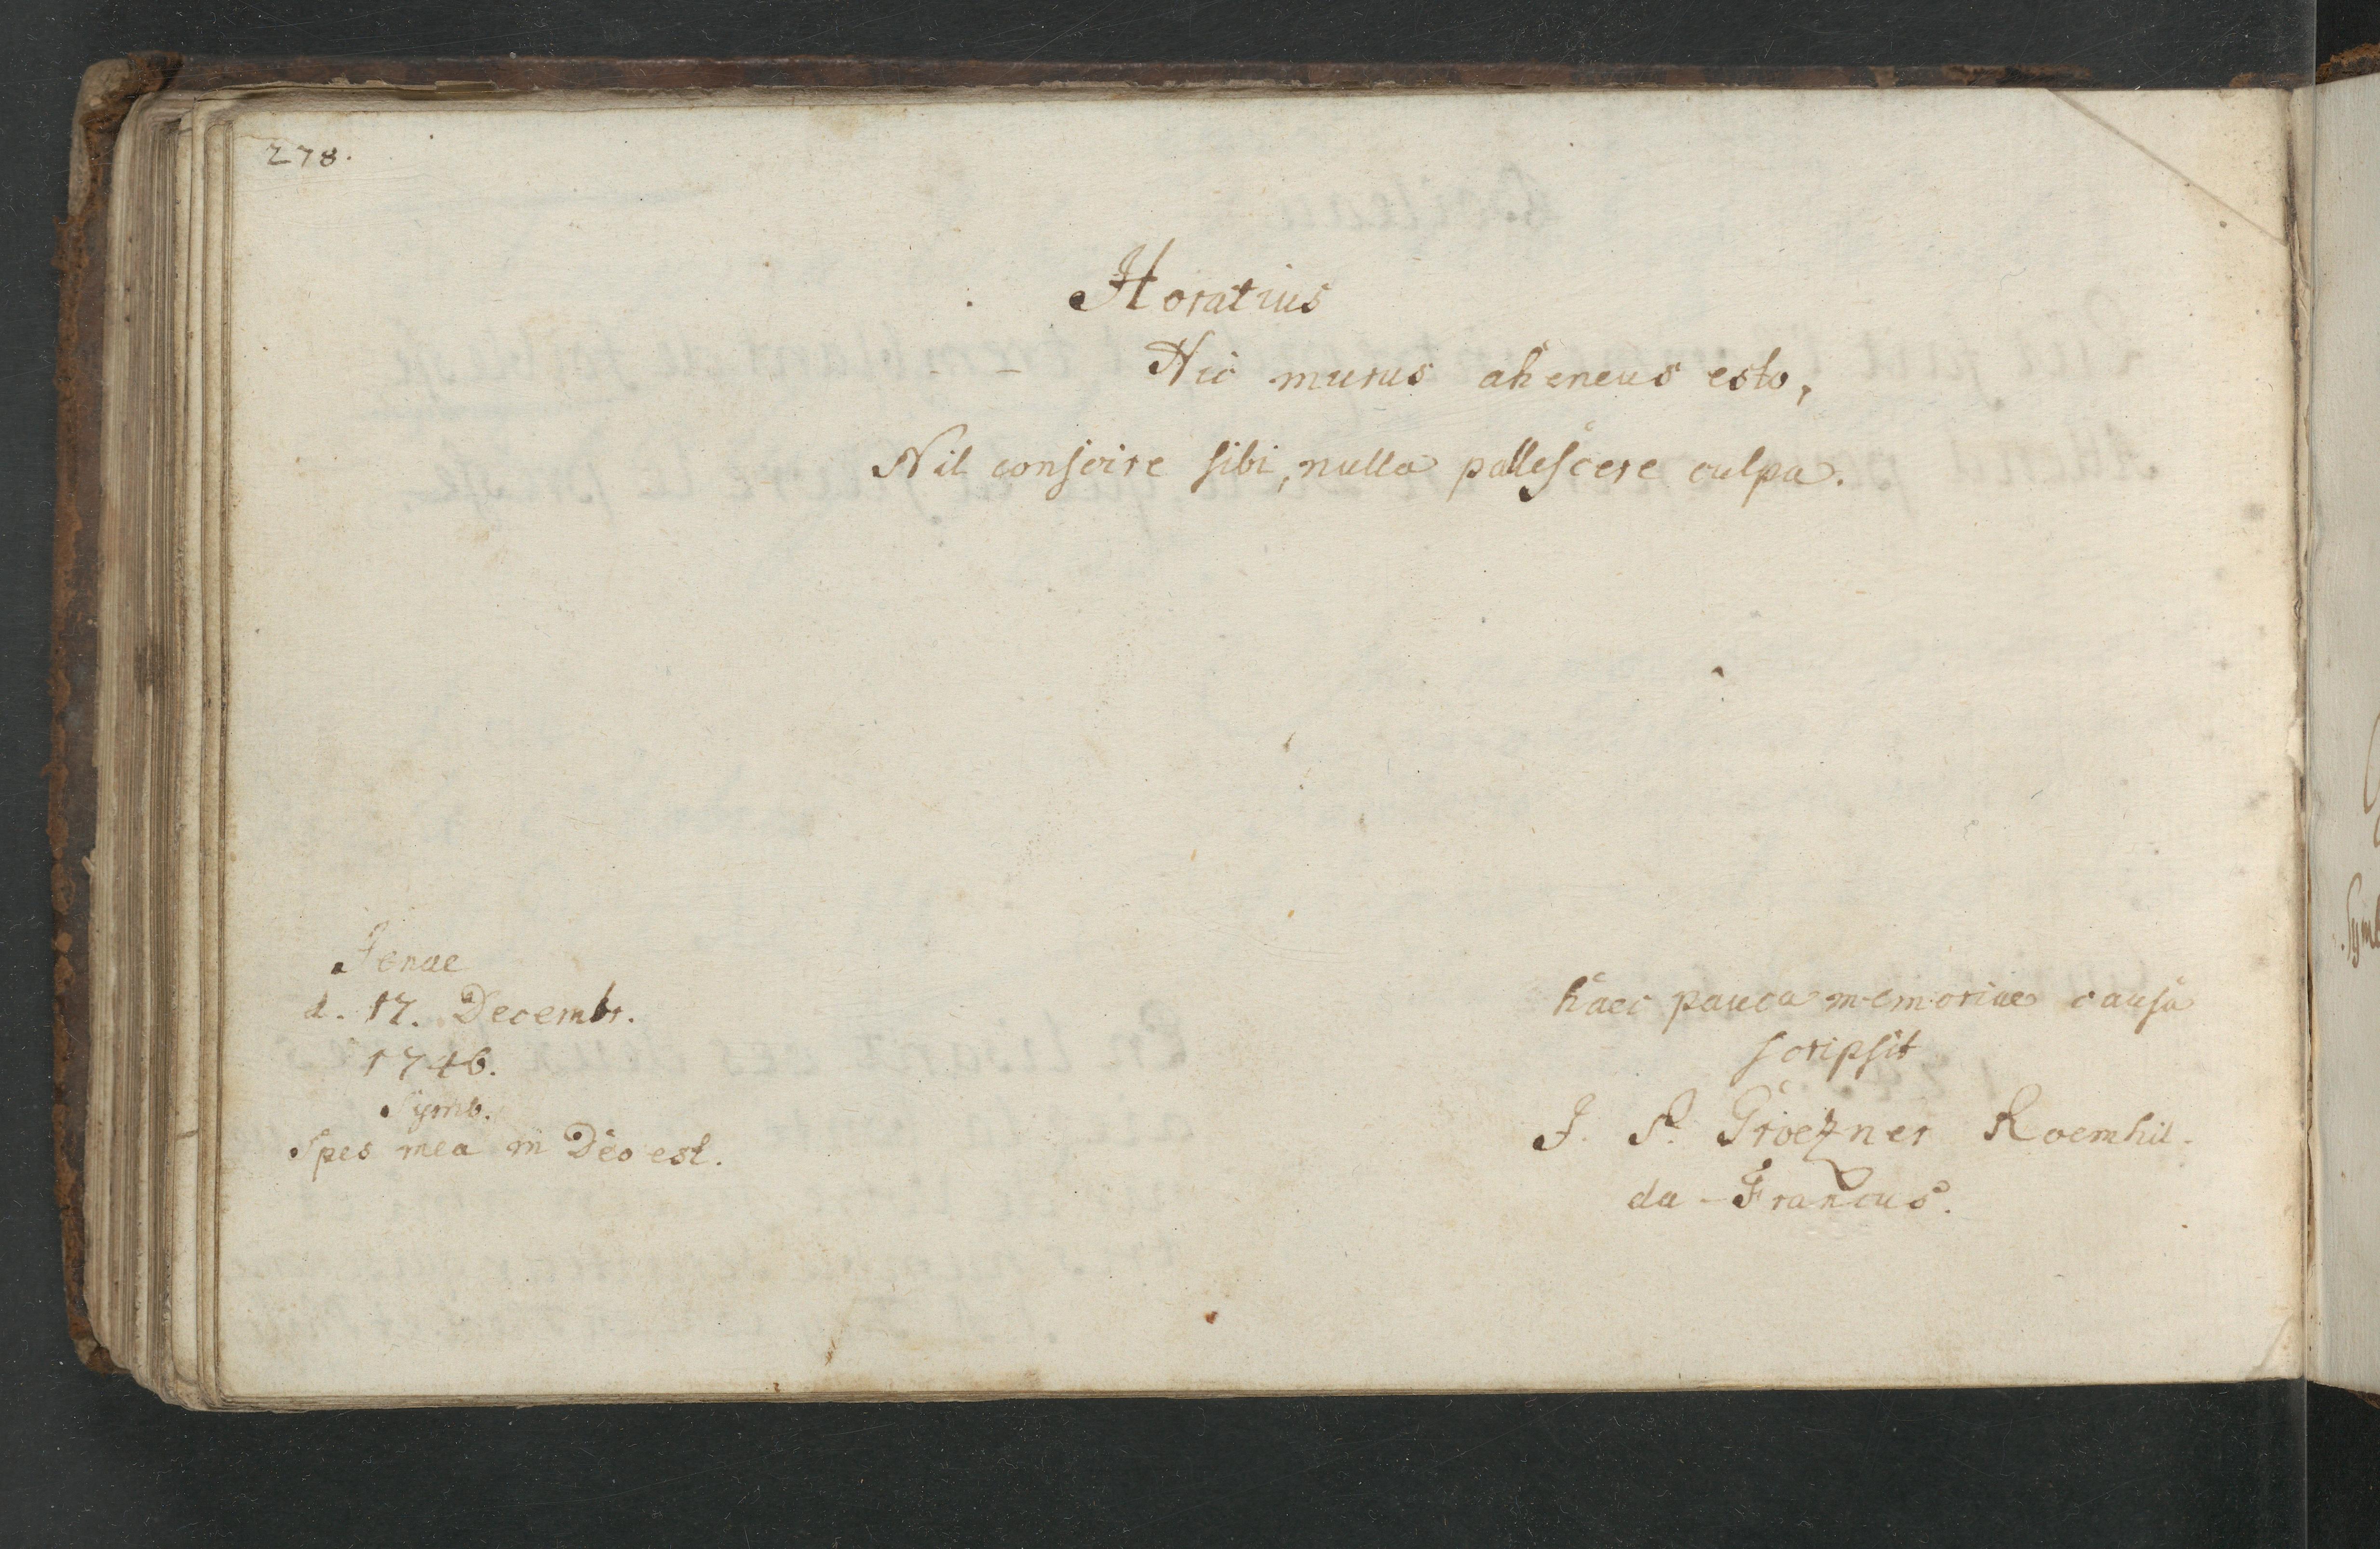 278.
Horatius
- - Hic murus aheneus esto,
Nil conscire sibi, nulla pallescere culpa.
Jenae
d. 17. Decembr.
1746.
Symb.
Spes mea in Deo est.
haec pauca memoriae causa
scripsit
J. S. Groezner Roemhil-
da-Francus.